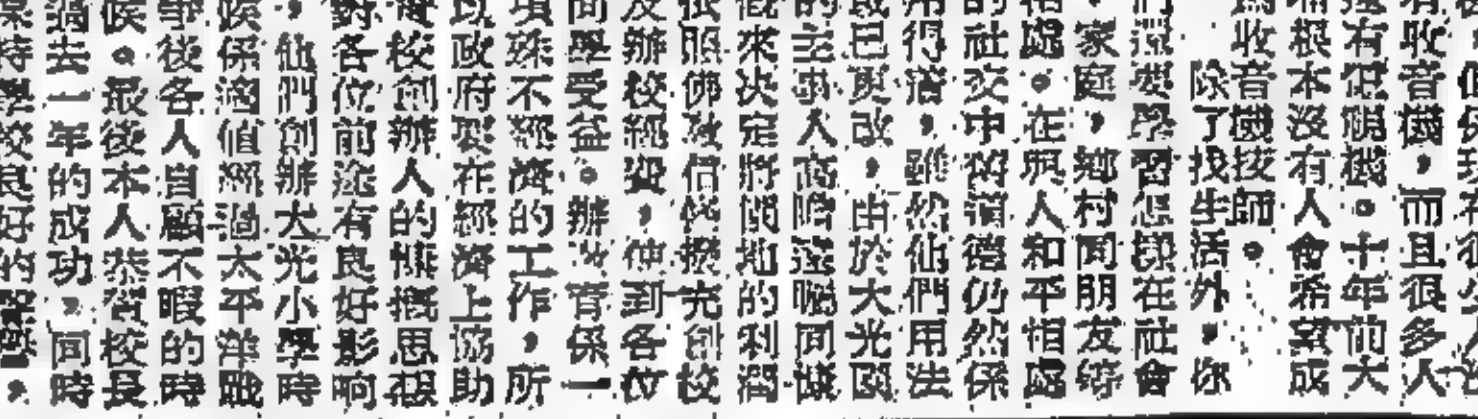 有收音機，而且很多人
還有電視機。十年前大
根本沒有人會希望成
為收音機技師。
除了找生活外，你
們還要學習怎樣在社會
家庭，鄉村同朋友等
相處。在與人和平相處
的社交中的道德仍然係
用得着，雖然佢們用法
或已更改，由於大光園
的主事人高瞻遠矚同慷
慨來决定將個地的利潤
照佛教信條撥充創校
及辦校經費，使到各位
同學受益。辦教育係一
項殊不經濟的工作，所
以政府要在經濟上協助
校創辦人的慷慨思想
對各位前途有良好影响
，他們創辦大光小學時
候係適值經過太平洋戰
爭後各人自顧不暇的時
候。最後本人恭賀校長
過去一年的成功，同時
學校良好的